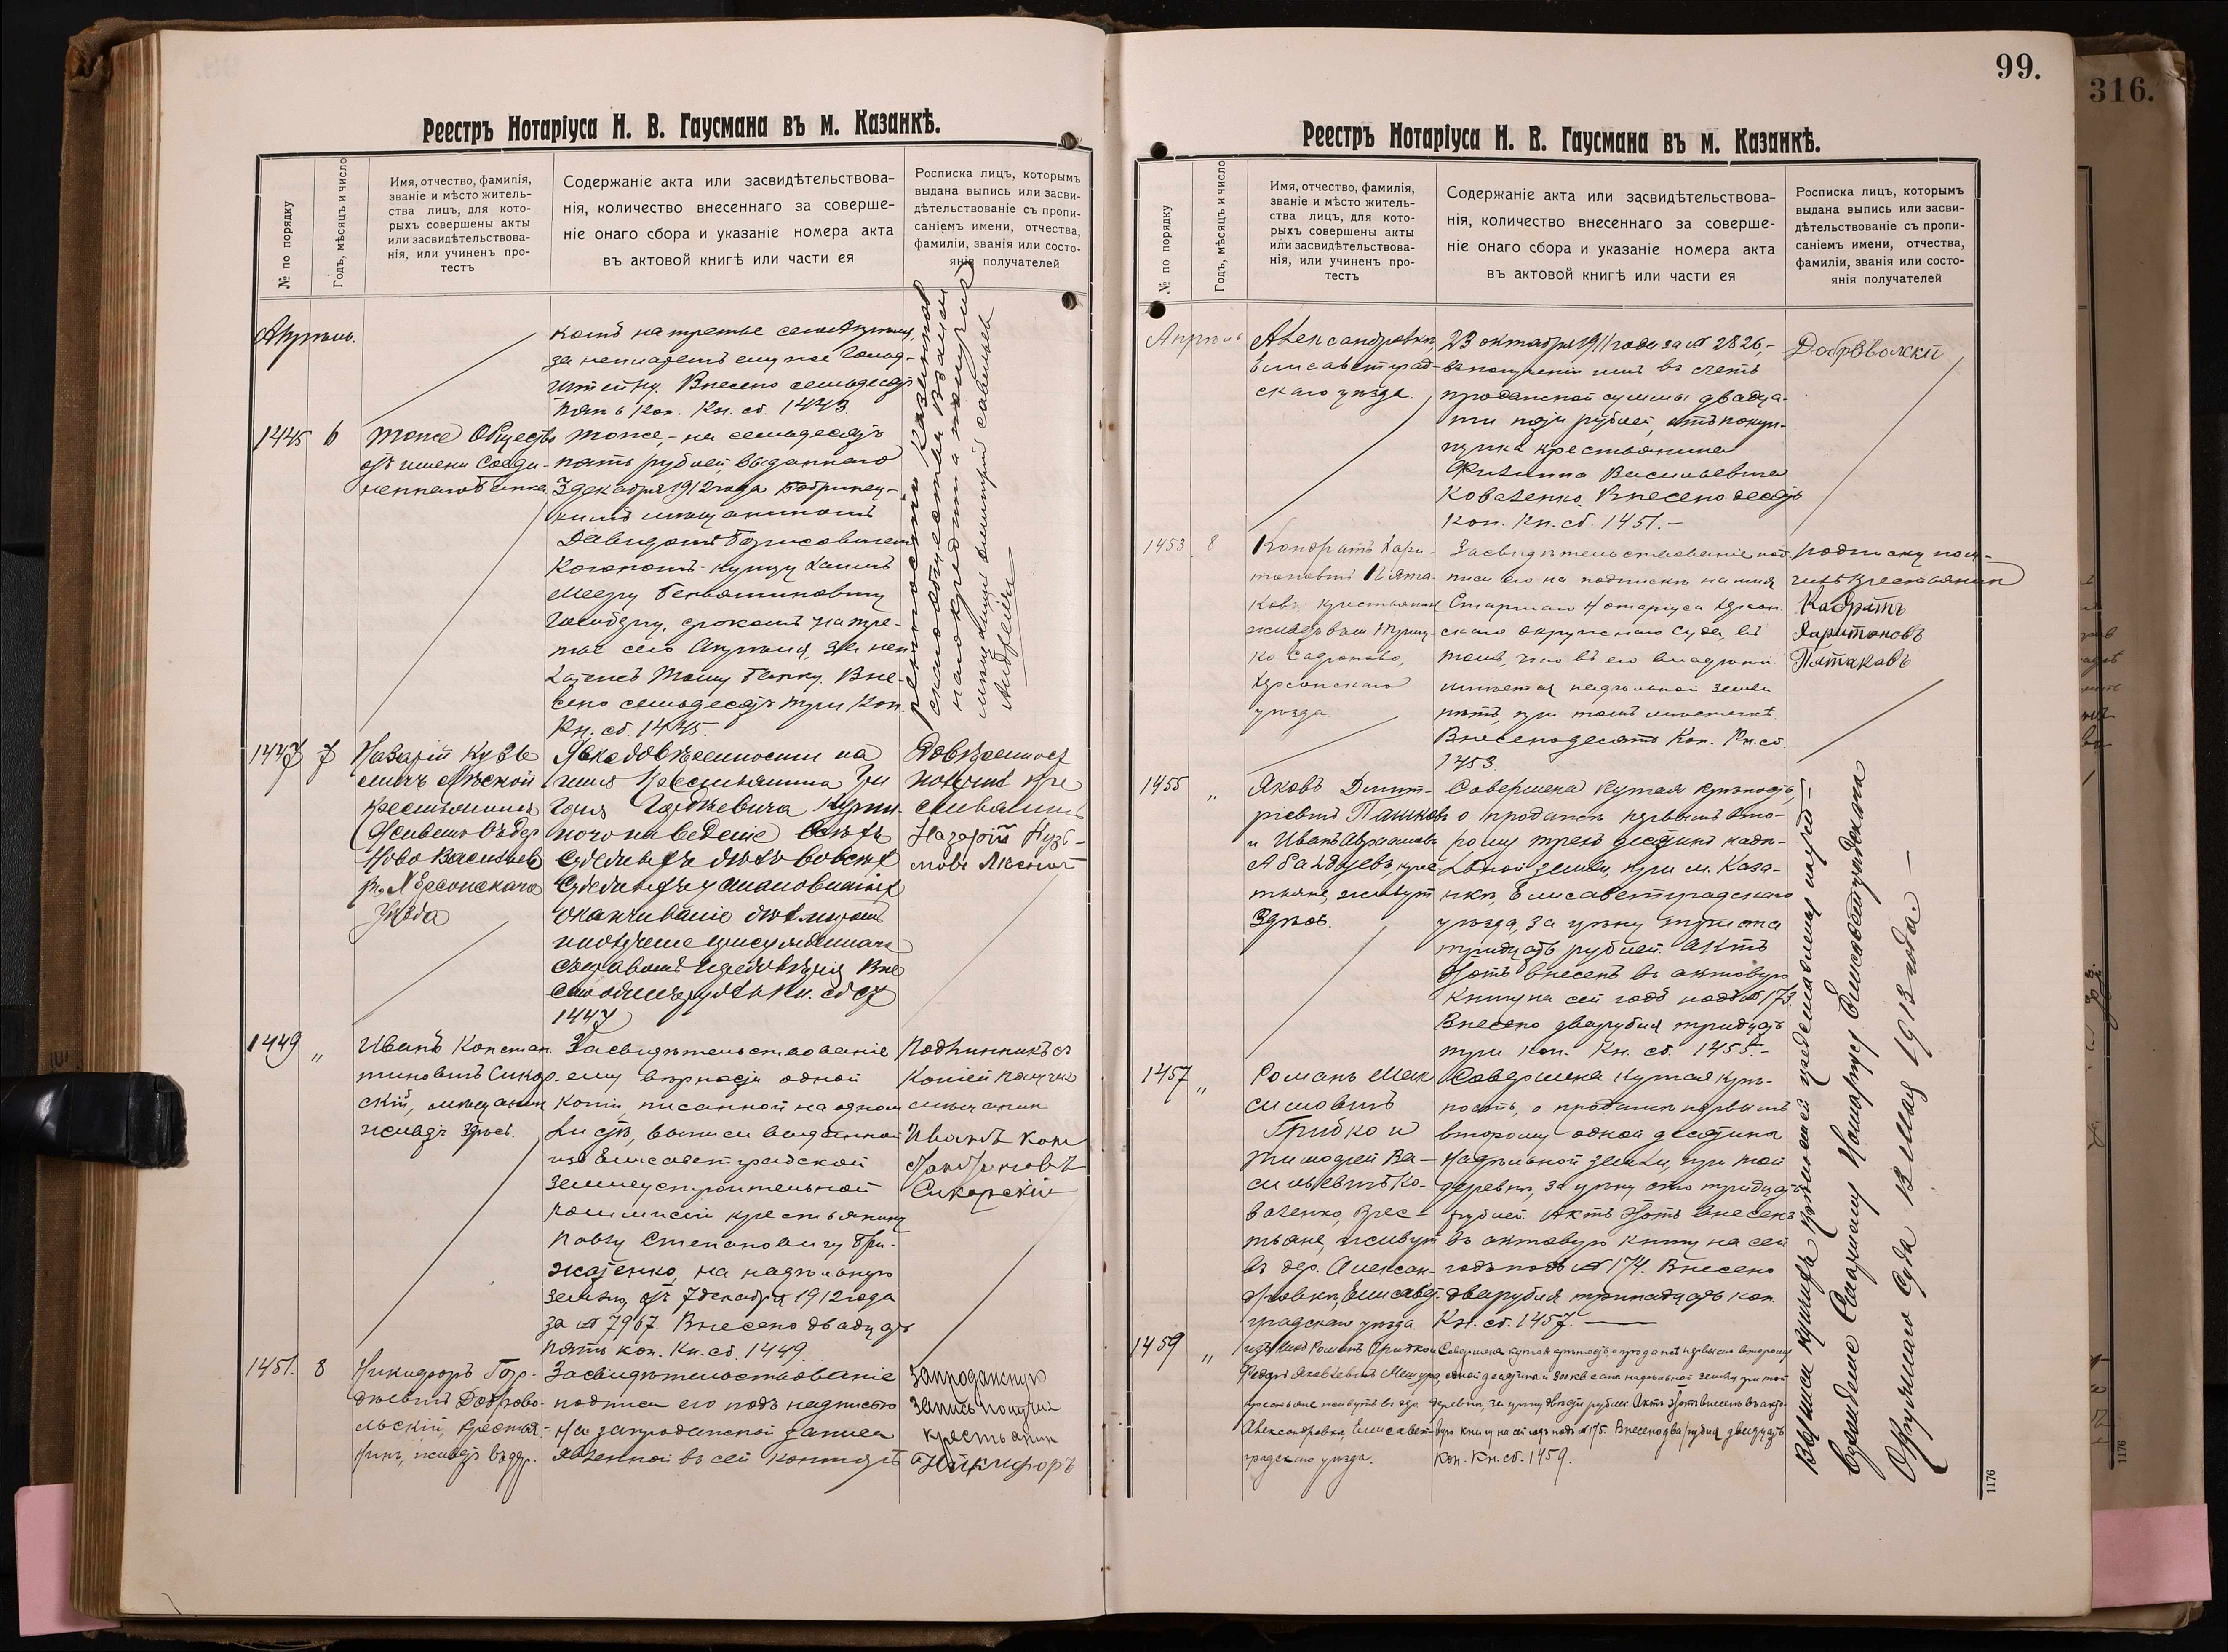 99.
316.
Реестръ Нотаріуса Н. В. Гаусмана въ м. Казанкѣ.
№ по порядку
Годъ, мѣсяцъ и число
Имя, отчество, фамилія,
званіе и мѣсто житель-
ства лицъ, для кото-
рыхъ совершены акты
или засвидѣтельствова-
нія, или учиненъ про-
тестъ
Содержаніе акта или засвидѣтельствова-
нія, количество внесеннаго за соверше-
ніе онаго сбора и указаніе номера акта
въ актовой книгѣ или части ея
Росписка лицъ, которымъ
выдана выпись или засви-
дѣтельствованіе съ пропи-
саніемъ имени, отчества,
фамиліи, званія или состо-
янія получателей
Апрѣль.
комъ на третье сего Апрѣля,
за неплатежъ ему же
Внесено семьдесятъ
пять коп. Кн. сб. 1443.
1445 6
тоже Общество
отъ имени Соеди-
неннаго банка
тоже, - на семьдесятъ
пять рублей, выданнаго
3 декабря 1912 года Бобринец-
кимъ мѣщаниномъ
Давидомъ Борисовичемъ
Коганомъ - купцу Хаимъ
Мееру Беньяминовичу
срокомъ на тре-
тье сего Апрѣля, за неп
латежъ тому банку. Вне-
сено семьдесятъ три коп.
Кн. сб. 1445.
1447 7
Назарій Кузь
мичъ Лѣсной
крестьянинъ
живетъ въ дер
Ново Васильев
Херсонскаго
Уѣзда
Явка довѣренности на
имя крестьянина
на веденіе всѣхъ
судебныхъ дѣлъ во всѣхъ
судебныхъ установленіяхъ
оканчиваніе дѣлъ миромъ
полученіе
съ правомъ передовѣрія Вне
сено одинъ рубль Кн. сб
1447
Довѣренност
получилъ кре
стьянинъ
Назарій Кузь-
мовъ Лѣсной
1449 „
Иванъ Констан-
тиновичъ Сикор-
скій, мѣщанин
живетъ здѣсь.
Засвидѣтельствованіе
ему вѣрности одной
копіи, писанной на одном
листѣ, выписи выданной
изъ Елисаветградской
землеустроительной
коммиссіи крестьянину
Павлу Степановичу Бри-
жатенко, на надѣльную
землю, отъ 7 декабря 1912 года
за № 7967. Внесено двадцать
пять коп. Кн. сб. 1449.
Подлинникъ съ
копіей получил
мѣщанин
Иванъ Кон
стантиновъ
Сикорскій
1451. 8
Никифоръ Гор-
дѣевичъ Доброво-
льскій, крестья-
нинъ, живетъ въ дер.
Засвидѣтельствованіе
подписи его подъ надписью
на запроданской записи
явленной въ сей конторѣ
Запроданскую
запись получил
крестьянин
Никифоръ
Реестръ Нотаріуса Н. В. Гаусмана въ м. Казанкѣ.
№ по порядку
Годъ, мѣсяцъ и число
Имя, отчество, фамилія,
званіе и мѣсто житель-
ства лицъ, для кото-
рыхъ совершены акты
или засвидѣтельствова-
нія, или учиненъ про-
тестъ
Содержаніе акта или засвидѣтельствова-
нія, количество внесеннаго за соверше-
ніе онаго сбора и указаніе номера акта
въ актовой книгѣ или части ея
Росписка лицъ, которымъ
выдана выпись или засви-
дѣтельствованіе съ пропи-
саніемъ имени, отчества,
фамиліи, званія или состо-
янія получателей
Апрѣль
Александровкѣ,
Елисаветград-
скаго уѣзда.
23 октября 1911 года за № 2826,-
въ полученіи имъ въ счетъ
проданской суммы двадца-
ти пяти рублей, отъ покуп-
щика крестьянина
Филиппа Васильевича
Коваленко. Внесено десять
коп. Кн. сб. 1451.-
Добровольски
1453 8
Кондратъ Хари-
тоновичъ Пята-
ковъ, крестьянин
живетъ въ м.
Херсонскаго
уѣзда
Засвидѣтельствованіе под-
писи его на подпискѣ на имя
Старшаго Нотаріуса Херсон-
скаго Окружнаго Суда, въ
томъ, что въ его владѣніи
имѣется надѣльной земли
при томъ мѣстечкѣ.
Внесено десять Коп. Кн. сб.
1453.
подписку полу-
чилъ крестьянин
Кадратъ
Харитоновъ
Пятаковъ
1455 „
Яковъ Дмит-
ріевичъ Пашковъ
и Иванъ Авраамовъ
крес-
тьяне, живутъ
здѣсь.
Совершена купчая крѣпость,
о продажѣ первымъ вто-
рому трехъ десятинъ надѣ-
льной земли, при м. Каза-
нкѣ, Елисаветградскаго
уѣзда, за цѣну триста
тридцать рублей. Актъ
этотъ внесенъ въ актовую
книгу на сей годъ подъ № 173.
Внесено два рубля тридцать
три коп. Кн. сб. 1455.-
1457 „
Романъ Мак
симовичъ
Грибко и
Тимофей Ва-
сильевичъ Ко-
валенко, крес-
тьяне, живутъ
въ дер. Алексан-
дровкѣ, Елисавет-
градскаго уѣзда.
Совершена купчая крѣ-
пость, о продажѣ первымъ
второму одной десятины
надѣльной земли, при той
деревнѣ, за цѣну сто тридцать
рублей. Актъ этотъ внесенъ
въ актовую книгу на сей
годъ подъ № 174. Внесено
два рубля тринадцать коп.
Кн. сб. 1457.
1459 „
Романъ Грибко и
Федоръ Яковлевичъ
крестьяне живутъ въ дер.
Александровкѣ, Елисавет-
градскаго уѣзда.
Совершена купчая крѣпость, о продажѣ первымъ второму
одной десятины и 300 кв. саж. надѣльной земли, при той
деревнѣ, за цѣну двѣсти рублей. Актъ этотъ внесенъ въ акто-
вую книгу на сей годъ подъ № 175. Внесено два рубля двадцать
коп. Кн. сб. 1459.
Старшему Нотаріусу Елисаветградскаго
Окружнаго Суда 13 Мая 1913 года.-
1176
1176